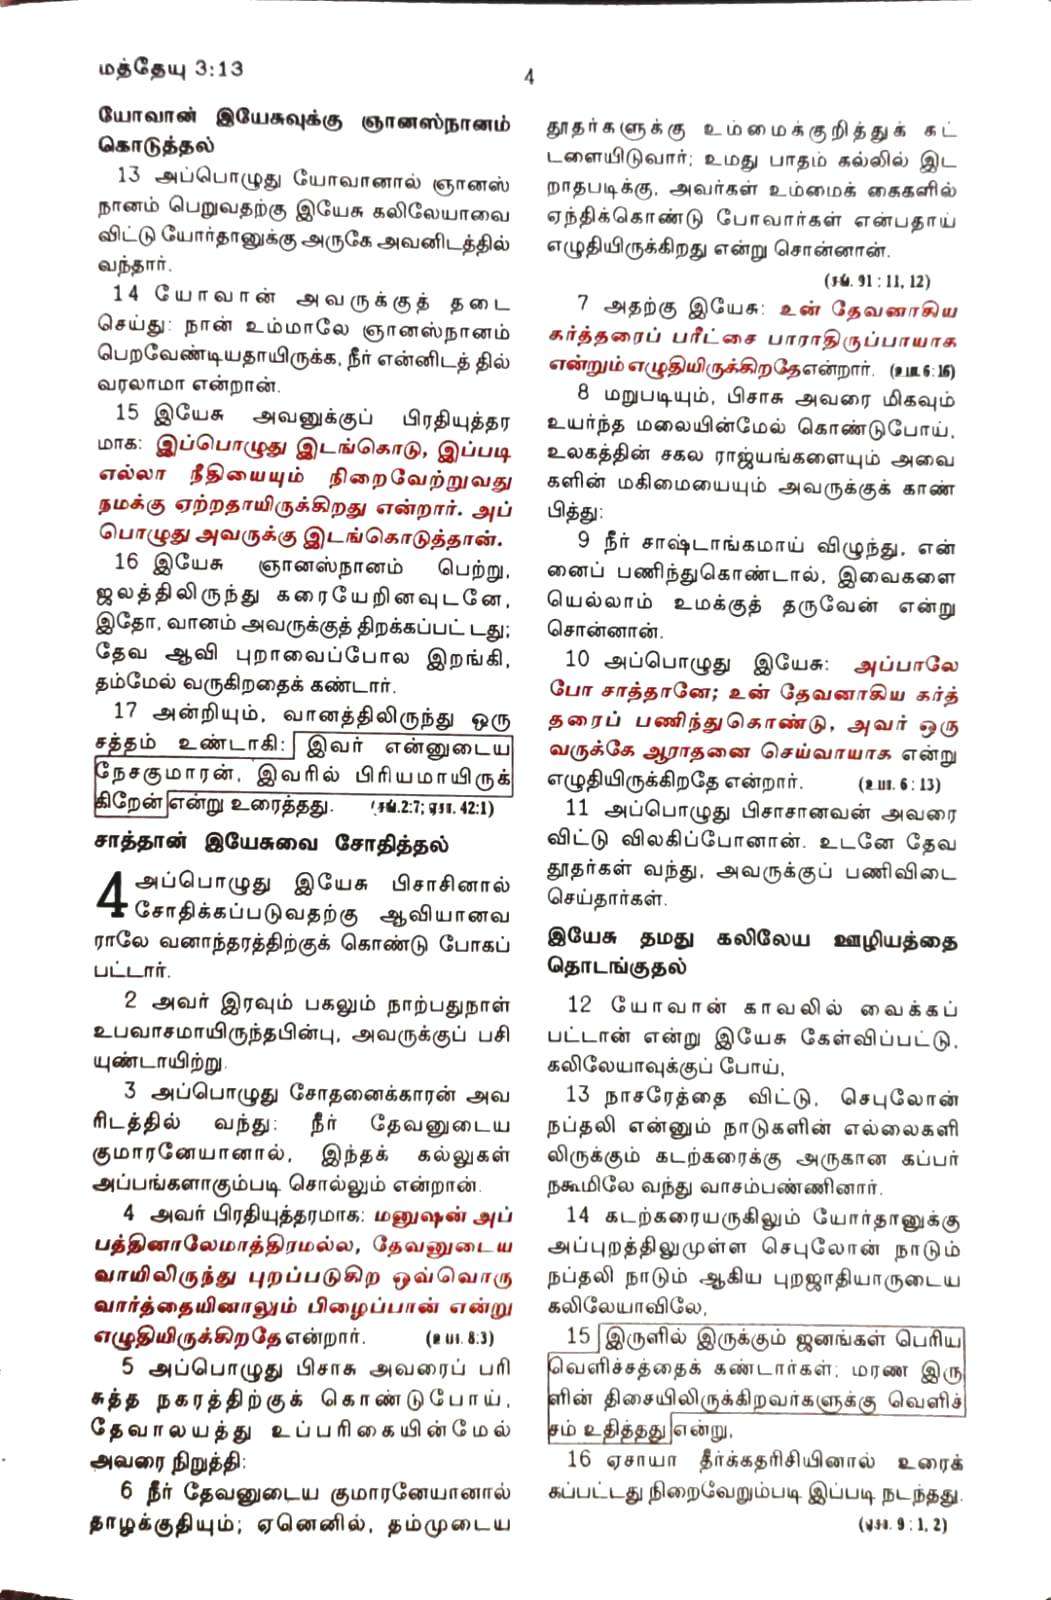 மத்தேயு 3:13
4
யோவான் இயேசுவுக்கு ஞானஸ்நானம்
கொடுத்தல்
13 அப்பொழுது யோவானால் ஞானஸ்
நானம் பெறுவதற்கு இயேசு கலிலேயாவை
விட்டு யோர்தானுக்கு அருகே அவனிடத்தில்
வந்தார்.
14 யோவான் அவருக்குத் தடை
செய்து: நான் உம்மாலே ஞானஸ்நானம்
பெறவேண்டியதாயிருக்க, நீர் என்னிடத் தில்
வரலாமா என்றான்.
15 இயேசு அவனுக்குப் பிரதியுத்தர
மாக: இப்பொழுது இடங்கொடு, இப்படி
எல்லா நீதியையும் நிறைவேற்றுவது
நமக்கு ஏற்றதாயிருக்கிறது என்றார். அப்
பொழுது அவருக்கு இடங்கொடுத்தான்.
16 இயேசு ஞானஸ்நானம் பெற்று,
ஜலத்திலிருந்து கரையேறினவுடனே,
இதோ, வானம் அவருக்குத் திறக்கப்பட் டது;
தேவ ஆவி புறாவைப்போல இறங்கி,
தம்மேல் வருகிறதைக் கண்டார்.
17 அன்றியும், வானத்திலிருந்து ஒரு
சத்தம் உண்டாகி: இவர் என்னுடைய
நேசகுமாரன், இவரில் பிரியமாயிருக்
கிறேன் என்று உரைத்தது. (சங்.2:7; ஏசா. 42:1)
சாத்தான் இயேசுவை சோதித்தல்
4 அப்பொழுது இயேசு பிசாசினால்
சோதிக்கப்படுவதற்கு ஆவியானவ
ராலே வனாந்தரத்திற்குக் கொண்டு போகப்
பட்டார்.
2 அவர் இரவும் பகலும் நாற்பதுநாள்
உபவாசமாயிருந்தபின்பு, அவருக்குப் பசி
யுண்டாயிற்று.
3 அப்பொழுது சோதனைக்காரன் அவ
ரிடத்தில் வந்து: நீர் தேவனுடைய
குமாரனேயானால், இந்தக் கல்லுகள்
அப்பங்களாகும்படி சொல்லும் என்றான்.
4 அவர் பிரதியுத்தரமாக: மனுஷன் அப்
பத்தினாலேமாத்திரமல்ல, தேவனுடைய
வாயிலிருந்து புறப்படுகிற ஒவ்வொரு
வார்த்தையினாலும் பிழைப்பான் என்று
எழுதியிருக்கிறதே என்றார். (உபா. 8:3)
5 அப்பொழுது பிசாசு அவரைப் பரி
சுத்த நகரத்திற்குக் கொண்டுபோய்,
தேவாலயத்து உப்பரிகையின்மேல்
அவரை நிறுத்தி:
6 நீர் தேவனுடைய குமாரனேயானால்
தாழக்குதியும்; ஏனெனில், தம்முடைய
தூதர்களுக்கு உம்மைக்குறித்துக் கட்
டளையிடுவார்; உமது பாதம் கல்லில் இட
றாதபடிக்கு, அவர்கள் உம்மைக் கைகளில்
ஏந்திக்கொண்டு போவார்கள் என்பதாய்
எழுதியிருக்கிறது என்று சொன்னான்.
(சங். 91 : 11, 12)
7 அதற்கு இயேசு: உன் தேவனாகிய
கர்த்தரைப் பரீட்சை பாராதிருப்பாயாக
என்றும் எழுதியிருக்கிறதே என்றார். (உபா. 6 : 16)
8 மறுபடியும், பிசாசு அவரை மிகவும்
உயர்ந்த மலையின்மேல் கொண்டுபோய்,
உலகத்தின் சகல ராஜ்யங்களையும் அவை
களின் மகிமையையும் அவருக்குக் காண்
பித்து:
9 நீர் சாஷ்டாங்கமாய் விழுந்து, என்
னைப் பணிந்துகொண்டால், இவைகளை
யெல்லாம் உமக்குத் தருவேன் என்று
சொன்னான்.
10 அப்பொழுது இயேசு: அப்பாலே
போ சாத்தானே; உன் தேவனாகிய கர்த்
தரைப் பணிந்துகொண்டு, அவர் ஒரு
வருக்கே ஆராதனை செய்வாயாக என்று
எழுதியிருக்கிறதே என்றார். (உபா. 6 : 13)
11 அப்பொழுது பிசாசானவன் அவரை
விட்டு விலகிப்போனான். உடனே தேவ
தூதர்கள் வந்து, அவருக்குப் பணிவிடை
செய்தார்கள்.
இயேசு தமது கலிலேய ஊழியத்தை
தொடங்குதல்
12 யோவான் காவலில் வைக்கப்
பட்டான் என்று இயேசு கேள்விப்பட்டு,
கலிலேயாவுக்குப் போய்,
13 நாசரேத்தை விட்டு, செபுலோன்
நப்தலி என்னும் நாடுகளின் எல்லைகளி
லிருக்கும் கடற்கரைக்கு அருகான கப்பர்
நகூமிலே வந்து வாசம்பண்ணினார்.
14 கடற்கரையருகிலும் யோர்தானுக்கு
அப்புறத்திலுமுள்ள செபுலோன் நாடும்
நப்தலி நாடும் ஆகிய புறஜாதியாருடைய
கலிலேயாவிலே,
15 இருளில் இருக்கும் ஜனங்கள் பெரிய
வெளிச்சத்தைக் கண்டார்கள்; மரண இரு
ளின் திசையிலிருக்கிறவர்களுக்கு வெளிச்
சம் உதித்தது என்று,
16 ஏசாயா தீர்க்கதரிசியினால் உரைக்
கப்பட்டது நிறைவேறும்படி இப்படி நடந்தது.
(ஏசா. 9 : 1, 2)